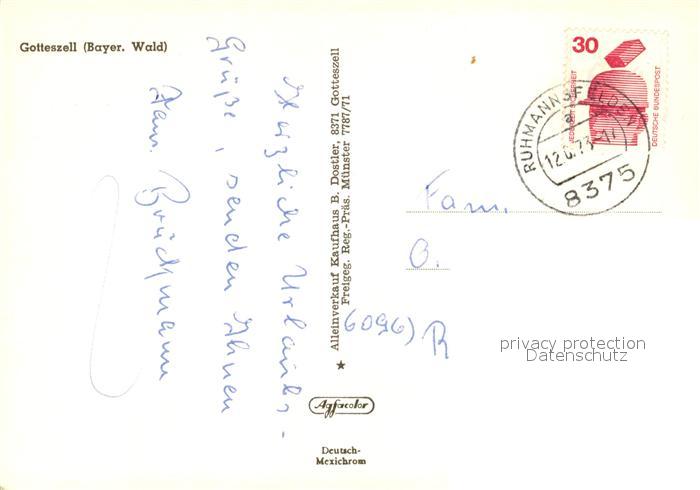 Gotteszell (Bayer. Wald)
Herzliche Urlaubs-
Grüße, senden Ihnen
Fam. Brückmann
Alleinverkauf Kaufhaus B. Dostler, 8371 Gotteszell
Freigeg. Reg.-Präs. Münster 7787/71
30
JEDERZEIT SICHERHEIT
DEUTSCHE BUNDESPOST
RUHMANNSFELDEN
a
12.6.73-17
8375
Fam.
O.
6096) R
privacy protection
Datenschutz
Agfacolor
Deutsch-
Mexichrom